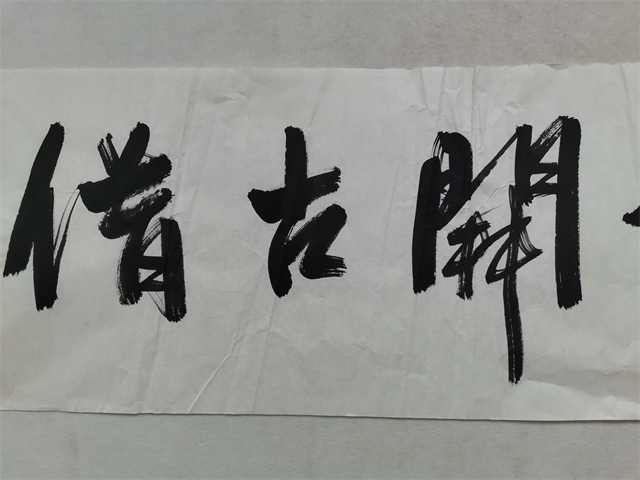 借古開